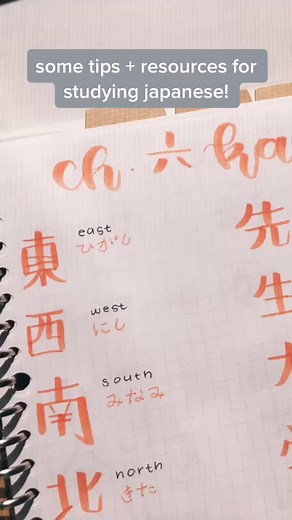 some tips + resources for
studying japanese!
ch. 六 ka
東 east
ひがし
西 west
にし
南 south
みなみ
北 north
きた
先
生